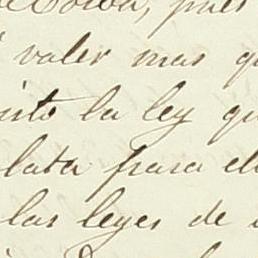 pues
valer mas q
la ley qu
lata para el
las leyes de